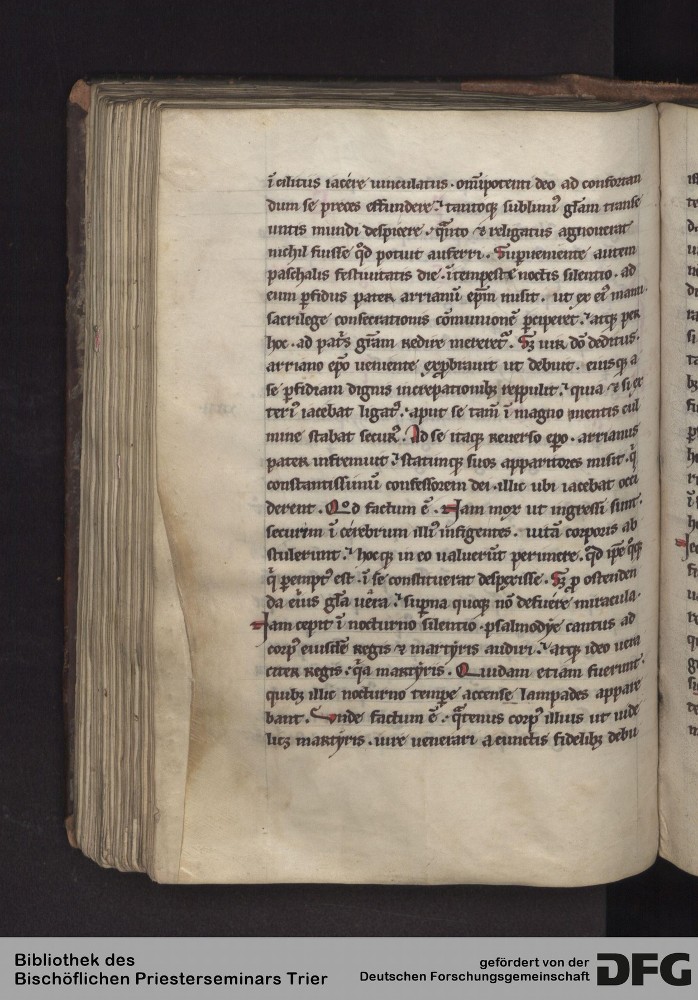 ī cilitiis iacére uinculatus . om̅ipotenti deo ad confortan
dum se preces effundere .᷎ tantoq; sublimiꝰ gl̅am transe
untis mundi despicere . qᷓnto ⁊ religatus agnouerat
nichil fuisse qͦd potuit auferri . Supueniente autem
paschalis festiuitatis die . ītempestę noctis silentio . ad
eum ꝑfidus pater arrianū ep̅m misit . ut ex eiꝰ manu
sacrilege consecrationis cōmunionē ꝑciperet .᷎ atq; per
hoc . ad pat̅s gr̅am redire mereret᷑ . Sꝫ uir dō deditus .
arriano ep̅o ueniente exprobrauit ut debuit . eiusq; a
se ꝑfidiam dignis increpationibꝫ reppulit .᷎ quia ⁊ si ex
teriꝰ iacebat ligatꝰ .᷎ aput se tam̅ ī magno mentis cul
mine stabat securꝰ . Ad se itaq; reuerso ep̅o . arrianus
pater infremuit .᷎ statimq; suos apparitores misit . qͥ
constantissimū confessorem dei . illic ubi iacebat occi
derent . Qͦd factum ē . Nam mox ut ingressi sunt .
securim ī cérebrum illiꝰ infigentes . uitā corporis ab
stulerunt .᷎ hocq; in eo ualuerūt perimere . qͦd ip̅e qͦq;
qͥ ꝑemptꝰ est . ī se constituerat despexisse . Sꝫ ꝓ ostenden
da eius gl̅a uera .᷎ supna quoq; nō defuére miracula .
Nam cepit ī nocturno silentio . psalmodye cantus ad
corpꝰ eiusdē regis ⁊ martyris audiri .᷎ atq; ideo uera
citer regis . qᷓa martyris . Quidam etiam fuerunt .
quibꝫ illic nocturno tempe accense lampades appare
bant . Unde factum ē . qᷓtenus corpꝰ illius ut uide
licꝫ martyris . iure uenerari a cunctis fidelibꝫ debu
Bibliothek des
Bischöflichen Priesterseminars Trier
gefördert von der
Deutschen Forschungsgemeinschaft
DFG